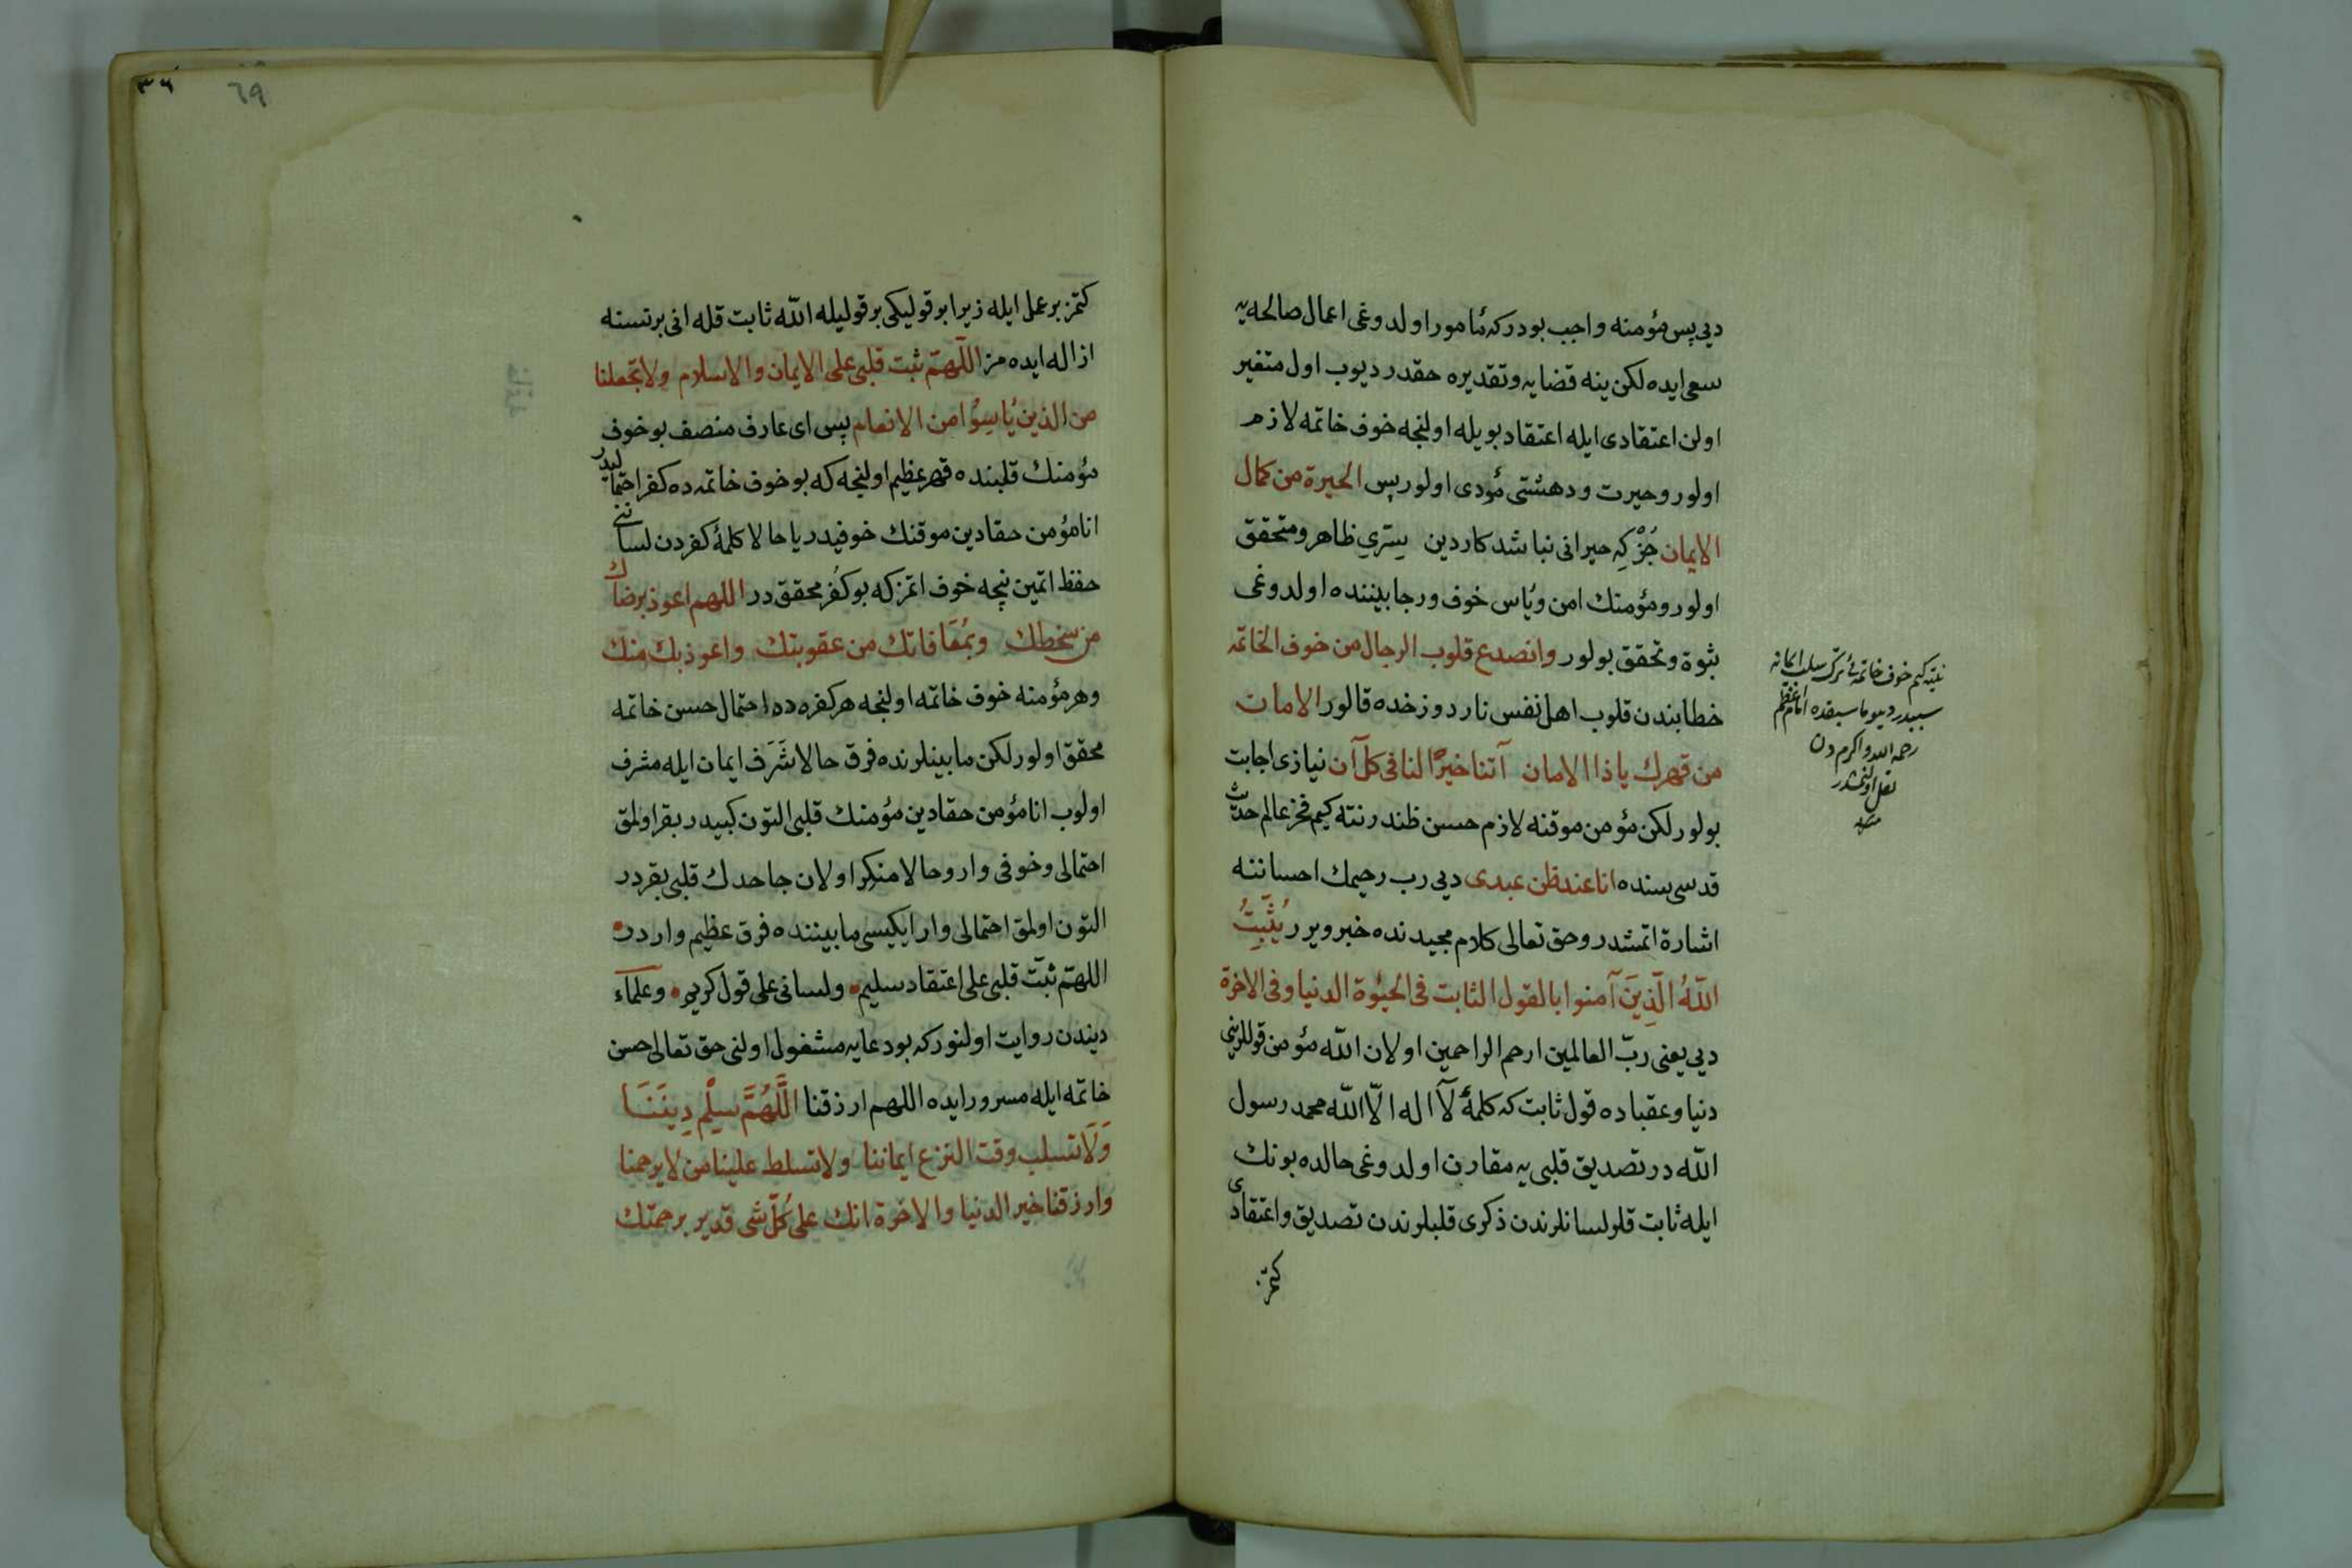 دیی پس مؤمنه واجب بودر که مأمور اولدوغی اعمال صالحه یه
سعی ایده لکن ینه قضایه وتقدیره حقدر دیوب اول متغیر
اولن اعتقادی ایله اعتقاد بویله اولنجه خوف خاتمه لازم
اولور وحیرت ودهشتی مؤدی اولور پس الحیرة من کمال
الایمان جُزْ کِه حیرانی نباشد کار دین یسّری ظاهر ومتحقق
اولور ومؤمنك امن ویأس خوف ورجا بیننده اولدوغی
ثبوة وتحقق بولور وانصدع قلوب الرجال من خوف الخاتمه
خطابندن قلوب اهل نفس نار دوزخده قالور الامان
من قهرك یا ذا الامان آتنا خیرًا لنا فی کل آن نیازی اجابت
بولور لکن مؤمن موقنه لازم حسن ظندر نته کیم فخر عالم حدیث
قدسی سنده انا عند ظن عبدی دیی رب رحیمك احساننه
اشارة اتمشدر وحق تعالی کلام مجیدنده خبر ویرر یُثَبِّتُ
اللّٰهُ الَّذِینَ آمنوا بالقول الثابت فی الحیٰوة الدنیا وفی الاخرة
دیی یعنی ربّ العالمین ارحم الراحمین اولان اللّٰه مؤمن قوللرینی
دنیا وعقباده قول ثابت که کلمهٔ لَا اله الّا اللّٰه محمد رسول
اللّٰه در تصدیق قلبی یه مقارن اولدوغی حالده بونك
ایله ثابت قلر لسانلرندن ذکری قلبلرندن تصدیق واعتقادی
کتمز
نته کیم خوف خاتمه یی ترك سلب ایمانه
سببدر دیو ما سبقده امام اعظم
رحمه الله واکرم دن
نقل اولنمشدر
منه
٣٦
٦٩
کتمز بر عمل ایله زیرا بر قولیکی بر قولیله اللّٰه ثابت قله انی بر نسنه
ازاله ایده مز اللّهمّ ثبت قلبی علی الایمان والاسلام ولا تجعلنا
من الذین یُأسِوُا من الانعام پس ای عارف منصف بو خوف
مؤمنك قلبنده قهر عظیم اولنجه که بو خوف خاتمه ده کفر احتمالیدر
انا مؤمن حقا دین موقنك خوفیدر یا حالا کلمهٔ کفردن لساننی
حفظ اتمین نیجه خوف اتمز که بو کفر محقق در اللهم اعوذ برضاك
من سخطك وبمُعَافاتك من عقوبتك واعوذ بك منك
وهر مؤمنه خوف خاتمه اولنجه هر کفره ده احتمال حسن خاتمه
محقق اولور لکن مابینلرنده فرق حالا شَرَف ایمان ایله مشرف
اولوب انا مؤمن حقا دین مؤمنك قلبی التون کبیدر بقر اولمق
احتمالی وخوفی وار وحالا منکر اولان جاحدك قلبی بقردر
التون اولمق احتمالی وار ایکیسی مابیننده فرق عظیم واردر
اللهمّ ثبّت قلبی علی اعتقاد سلیم ولسانی علی قول کریم وعلماء
دیندن روایت اولنور که بو دعایه مشغول اولنی حق تعالی حسن
خاتمه ایله مسرور ایده اللهم ارزقنا اللَّهُمَّ سلِّم دِینَنَا
وَلَا تسلب وقت النزع ایماننا ولا تسلط علینا من لا یرحمنا
وارزقنا خیر الدنیا والاخرة انك علی کُلّ شی قدیر برحمتك